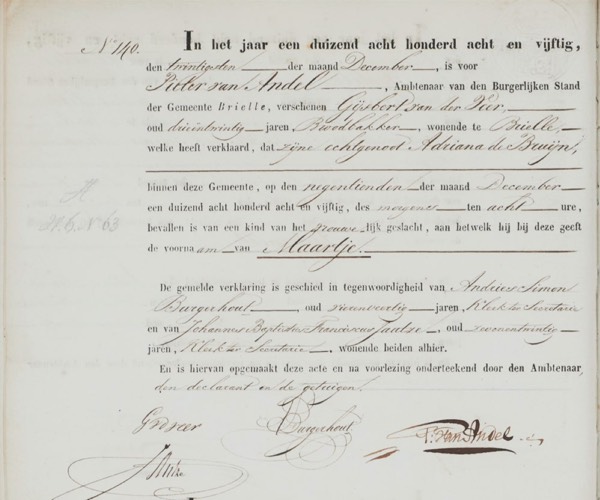 Nº 140. In het jaar een duizend acht honderd acht en vijftig,
den twintigsten der maand December, is voor
Pieter van Andel, Ambtenaar van den Burgerlijken Stand
der Gemeente Brielle, verschenen Gijsbert van der Veer
oud drieentwintig jaren, Broodbakker, wonende te Brielle,
welke heeft verklaard, dat zijne echtgenoot Adriana de Bruijn,
binnen deze Gemeente, op den negentienden der maand December
een duizend acht honderd acht en vijftig, des morgens ten acht ure,
bevallen is van een kind van het vrouwelijk geslacht, aan hetwelk hij bij deze geeft
de voornaam van Maartje.
De gemelde verklaring is geschied in tegenwoordigheid van Andries Simon
Burgerhout, oud vierenveertig jaren, Klerk ter Secretarie
en van Johannes Baptistus Franciscus, oud
jaren, Klerk ter Secretarie, wonende beiden alhier.
En is hiervan opgemaakt deze acte en na voorlezing onderteekend door den Ambtenaar,
den declarant en de getuigen.
Gvdveer Burgerhout P. Van Andel